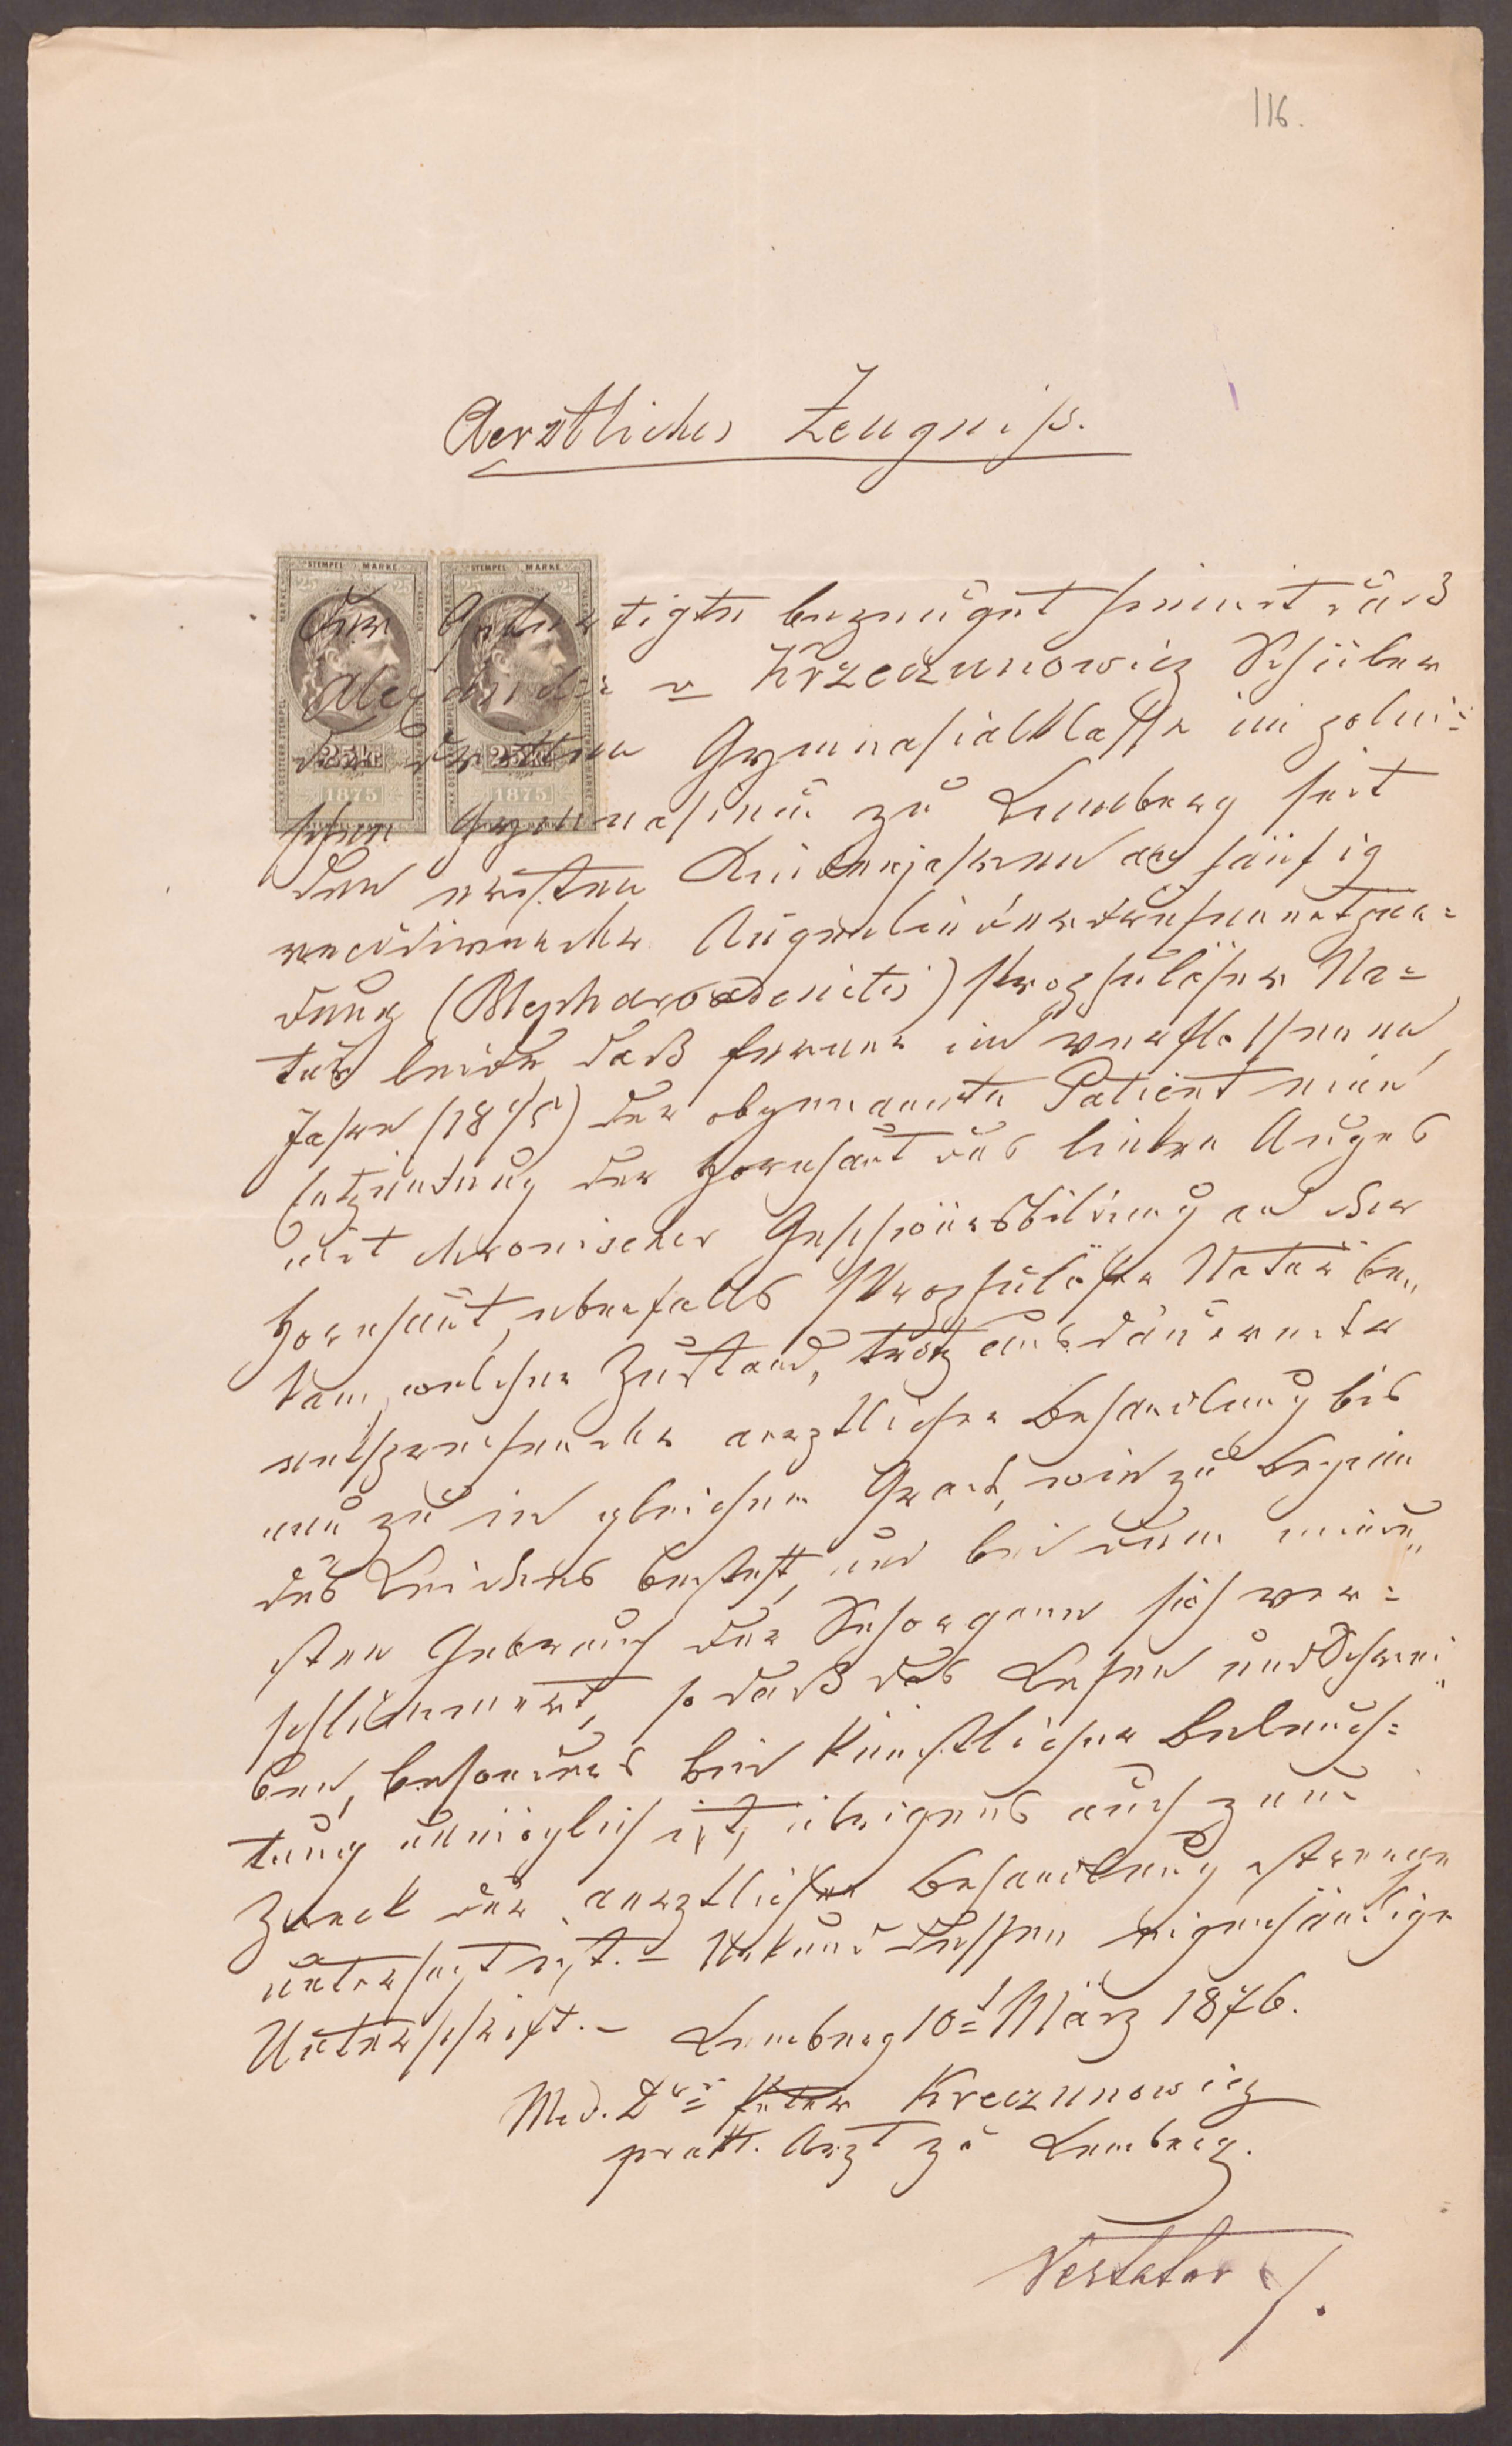 116.
Aerztliches Zeugniß.
STEMPEL MARKE STEMPEL MARKE
25 25 25 25
25 kr. 25 kr.
1875 1875
Der Gefertigte bezeugt hiemit daß
Alexander v Krzeczunowicz Schüler
der dritten Gymnasialklasse im polni=
schen Gymnasium zu Lemberg seit
den ersten Kinderjahren an häufig
recidivirender Augenliderdrüsenentzün=
dung (Blepharoadenitis) skrophulöser Na=
tur leide daß ferner im verflossenen
Jahre (1875) der obgenannte Patient eine
Entzündung der Hornhaut des linken Auges
mit chronischer Geschwürsbildung an der
Hornhaut, ebenfalls skrophulöser Natur be„
kam, welcher Zustand, trotz ausdauernder
entsprechender aerztlicher Behandlung bis
nun zu in gleichem Grad, wie zu Beginn
des Leidens besteht, und bei dem minde„
sten Gebrauch der Sehorgane sich ver=
schlimmert, so daß das Lesen und Schrei„
ben, besonders bei künstlicher Beleuch=
tung unmöglich ist, übrigens auch zum
Zweck der aerztlichen Behandlung strenge
untersagt ist. – Urkund dessen eigenhändige
Unterschrift. – Lemberg 10t März 1876.
Med. Dr Kreczunowicz
prakt. Arzt zu Lemberg.